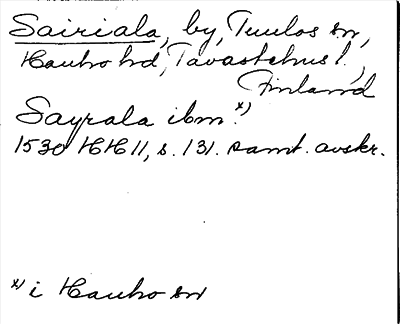 Sairiala, by, Tuulos sn,
Hauho hd, Tavastehus l.,
Finland
Sayrala ibm.x)
1530 HH II, s. 131. samt. avskr.
x) i Hauho sn